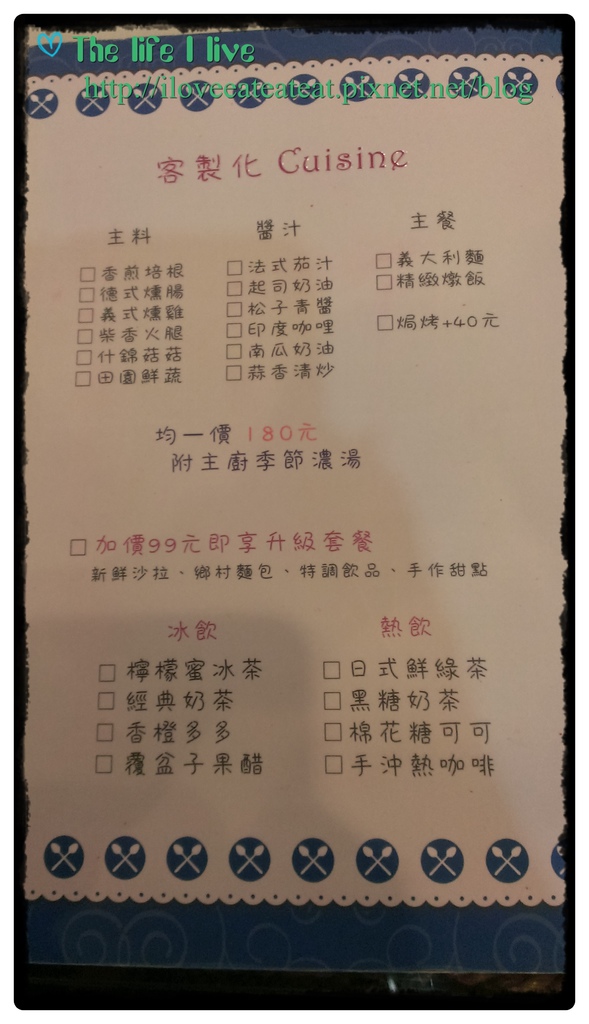 The life I live
http://iloveeateateat.pixnet.net/blog
客製化 Cuisine
主料
□香煎培根
□德式燻腸
□義式燻雞
□柴香火腿
□什錦菇菇
□田園鮮蔬
醬汁
□法式茄汁
□起司奶油
□松子青醬
□印度咖哩
□南瓜奶油
□蒜香清炒
主餐
□義大利麵
□精緻燉飯
□焗烤+40元
均一價 180元
附主廚季節濃湯
□加價99元即享升級套餐
新鮮沙拉、鄉村麵包、特調飲品、手作甜點
冰飲
□檸檬蜜冰茶
□經典奶茶
□香橙多多
□覆盆子果醋
熱飲
□日式鮮綠茶
□黑糖奶茶
□棉花糖可可
□手沖熱咖啡